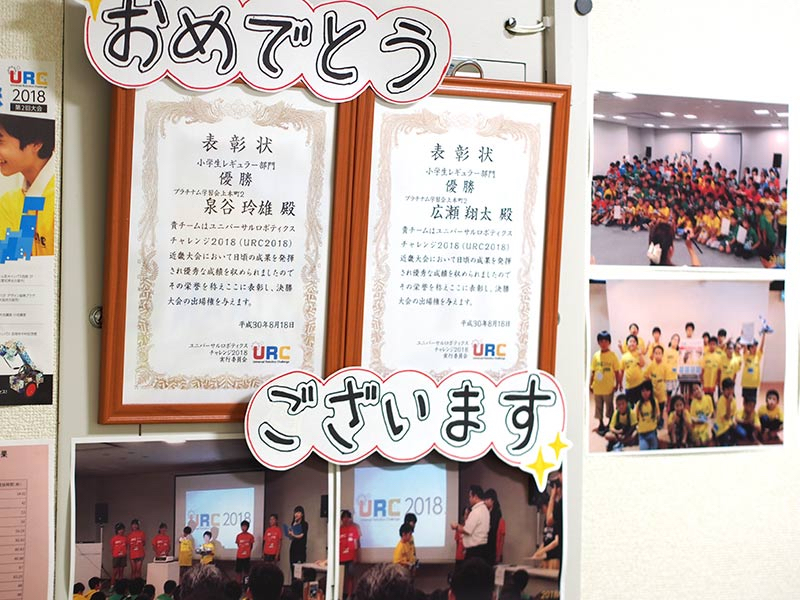 おめでとう
URC
2018
第2回大会
表彰状
小学生レギュラー部門
優勝
プラチナム学習会上本町2
泉谷 玲雄 殿
貴チームはユニバーサルロボティクス
チャレンジ2018(URC2018)
近畿大会において日頃の成果を発揮
され優秀な成績を収められましたので
その栄誉を称えここに表彰し、決勝
大会の出場権を与えます。
平成30年8月18日
ユニバーサルロボティクス
チャレンジ2018
実行委員会
URC
表彰状
小学生レギュラー部門
優勝
プラチナム学習会上本町2
広瀬 翔太 殿
貴チームはユニバーサルロボティクス
チャレンジ2018(URC2018)
近畿大会において日頃の成果を発揮
され優秀な成績を収められましたので
その栄誉を称えここに表彰し、決勝
大会の出場権を与えます。
平成30年8月18日
ユニバーサルロボティクス
チャレンジ2018
実行委員会
URC
ございます
URC 2018
URC 2018